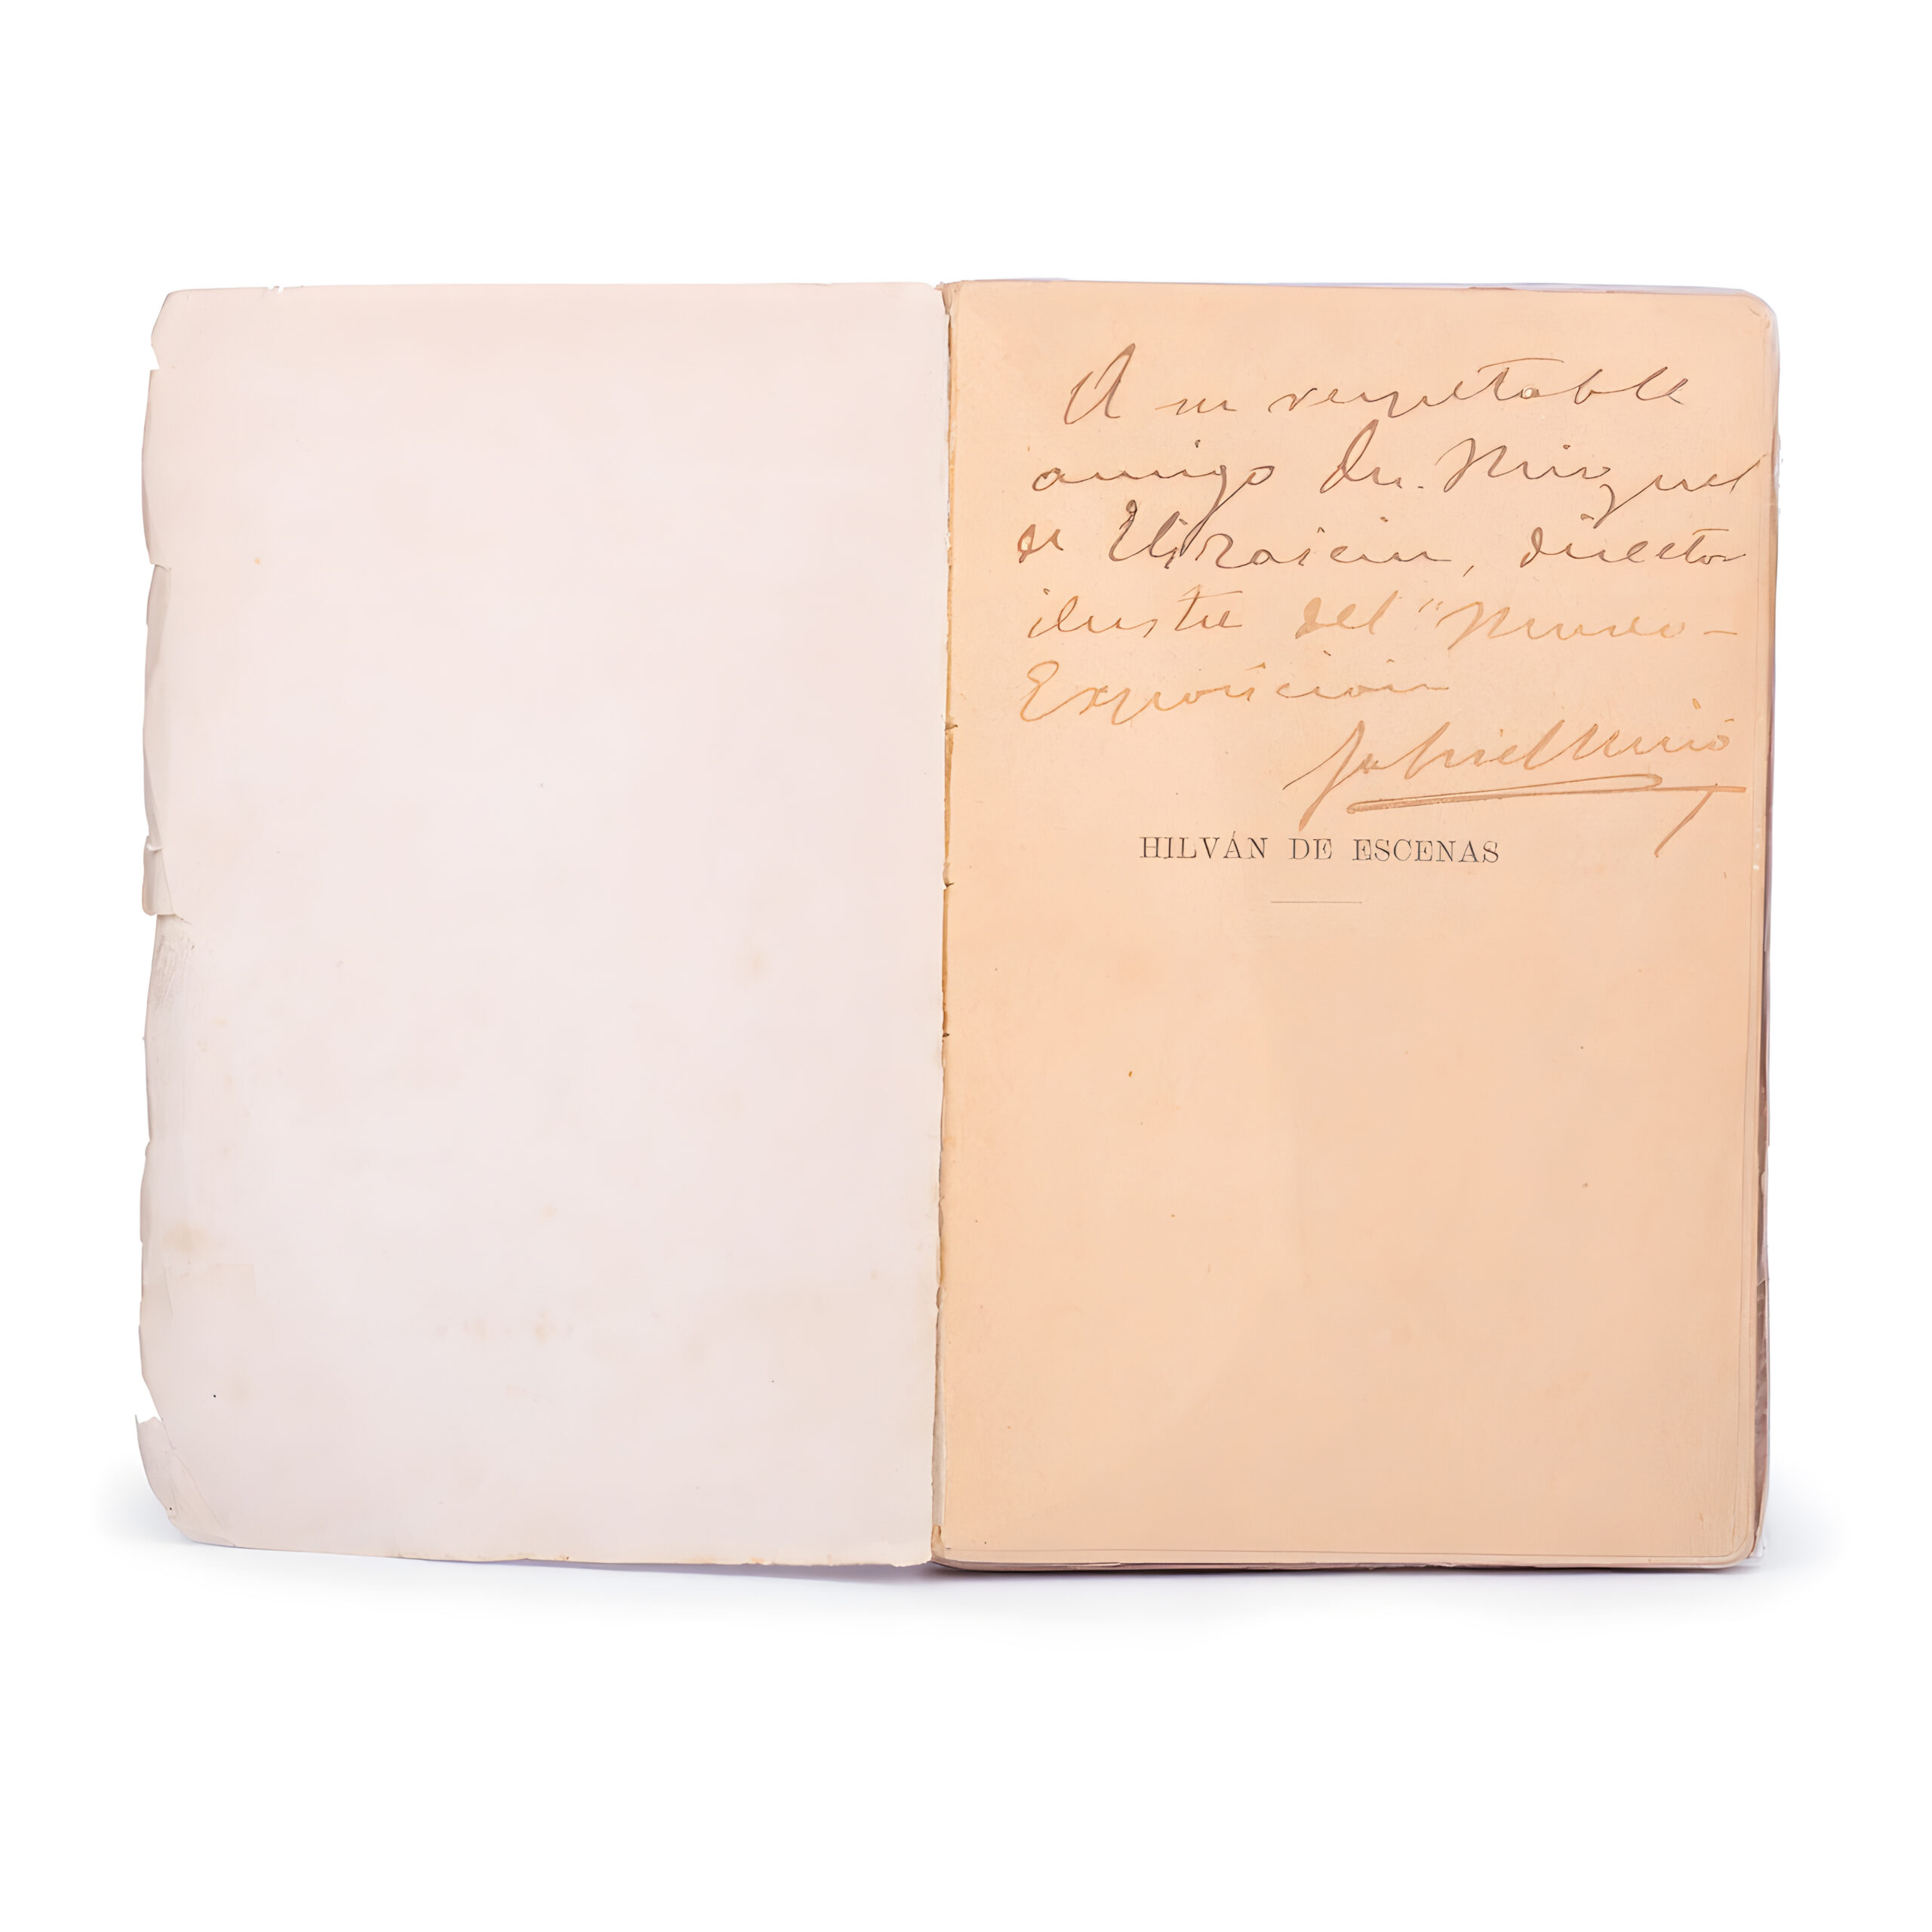 A su respetable
amigo Dn. Miguel
de Elizaicin, director
ilustre del "Museo-
Exposición
Gabriel Miró
HILVÁN DE ESCENAS